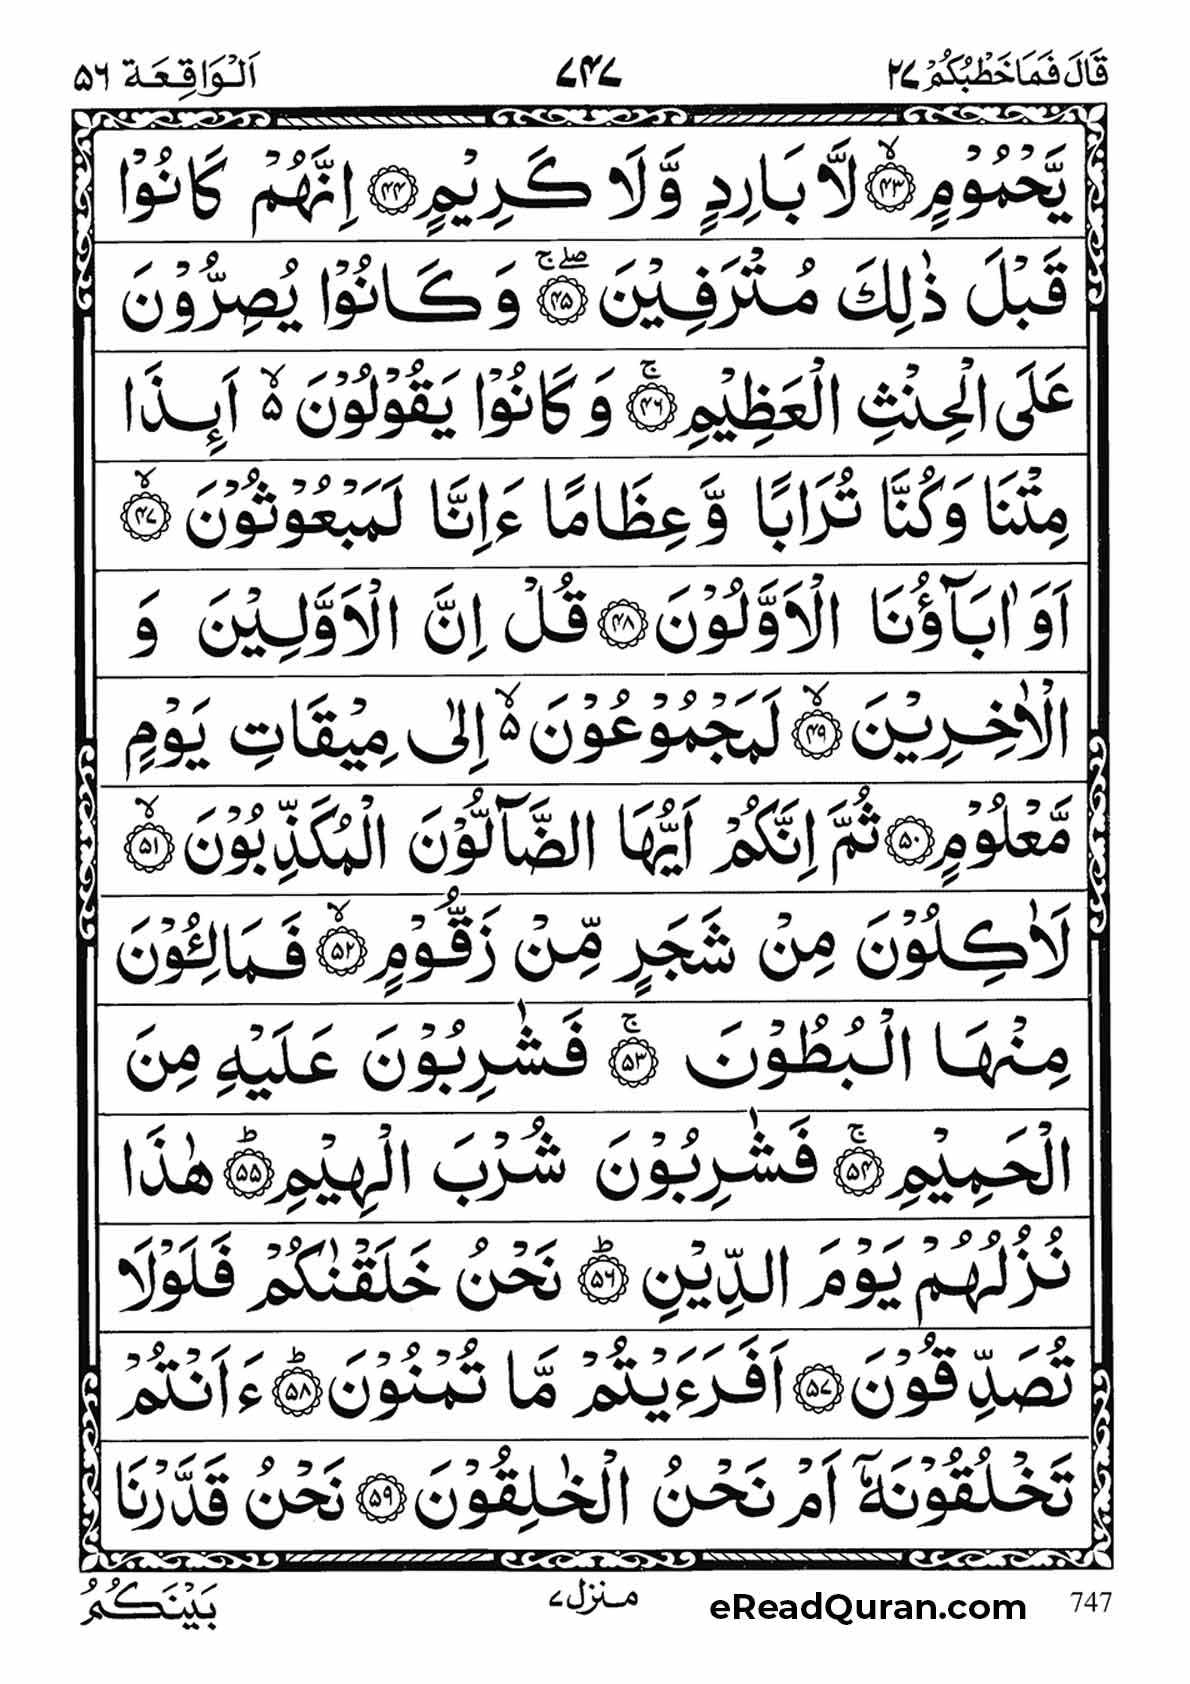 قَالَ فَمَا خَطْبُكُمْ ٢٧ ٧٤٧ اَلْوَاقِعَة ٥٦
يَّحْمُوْمٍ ۙ﴿۴۳﴾ لَّا بَارِدٍ وَّلَا كَرِيْمٍ ﴿۴۴﴾ اِنَّهُمْ كَانُوْا
قَبْلَ ذٰلِكَ مُتْرَفِيْنَ ۖۚ﴿۴۵﴾ وَكَانُوْا يُصِرُّوْنَ
عَلَى الْحِنْثِ الْعَظِيْمِ ۚ﴿۴۶﴾ وَكَانُوْا يَقُوْلُوْنَ ۙ۵ اَىِٕذَا
مِتْنَا وَكُنَّا تُرَابًا وَّعِظَامًا ءَاِنَّا لَمَبْعُوْثُوْنَ ۙ﴿۴۷﴾
اَوَاٰبَآؤُنَا الْاَوَّلُوْنَ ﴿۴۸﴾ قُلْ اِنَّ الْاَوَّلِيْنَ وَ
الْاٰخِرِيْنَ ۙ﴿۴۹﴾ لَمَجْمُوْعُوْنَ ۙ۵ اِلٰى مِيْقَاتِ يَوْمٍ
مَّعْلُوْمٍ ﴿۵۰﴾ ثُمَّ اِنَّكُمْ اَيُّهَا الضَّآلُّوْنَ الْمُكَذِّبُوْنَ ۙ﴿۵۱﴾
لَاٰكِلُوْنَ مِنْ شَجَرٍ مِّنْ زَقُّوْمٍ ۙ﴿۵۲﴾ فَمَالِـُٔوْنَ
مِنْهَا الْبُطُوْنَ ۚ﴿۵۳﴾ فَشٰرِبُوْنَ عَلَيْهِ مِنَ
الْحَمِيْمِ ۚ﴿۵۴﴾ فَشٰرِبُوْنَ شُرْبَ الْهِيْمِ ؕ﴿۵۵﴾ هٰذَا
نُزُلُهُمْ يَوْمَ الدِّيْنِ ؕ﴿۵۶﴾ نَحْنُ خَلَقْنٰكُمْ فَلَوْلَا
تُصَدِّقُوْنَ ﴿۵۷﴾ اَفَرَءَيْتُمْ مَّا تُمْنُوْنَ ؕ﴿۵۸﴾ ءَاَنْتُمْ
تَخْلُقُوْنَهٗۤ اَمْ نَحْنُ الْخٰلِقُوْنَ ﴿۵۹﴾ نَحْنُ قَدَّرْنَا
بَيْنَكُمُ منزل٧ eReadQuran.com 747